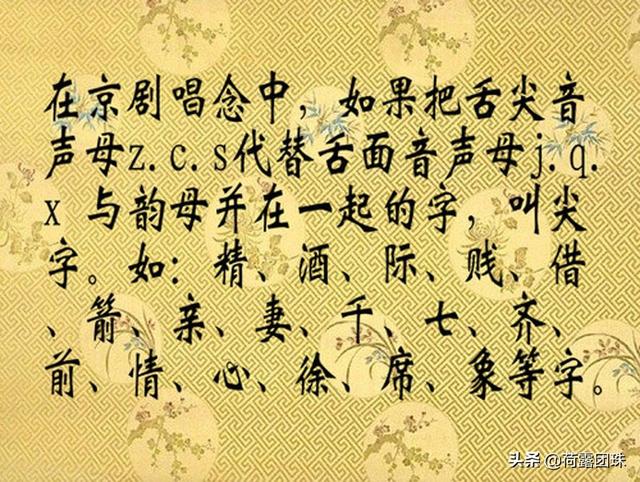 在京剧唱念中，如果把舌尖音
声母z.c.s代替舌面音声母j.q.
x 与韵母并在一起的字，叫尖
字。如：精、酒、际、贱、借
、箭、亲、妻、千、七、齐、
前、情、心、徐、席、象等字。
头条 @荷露团珠